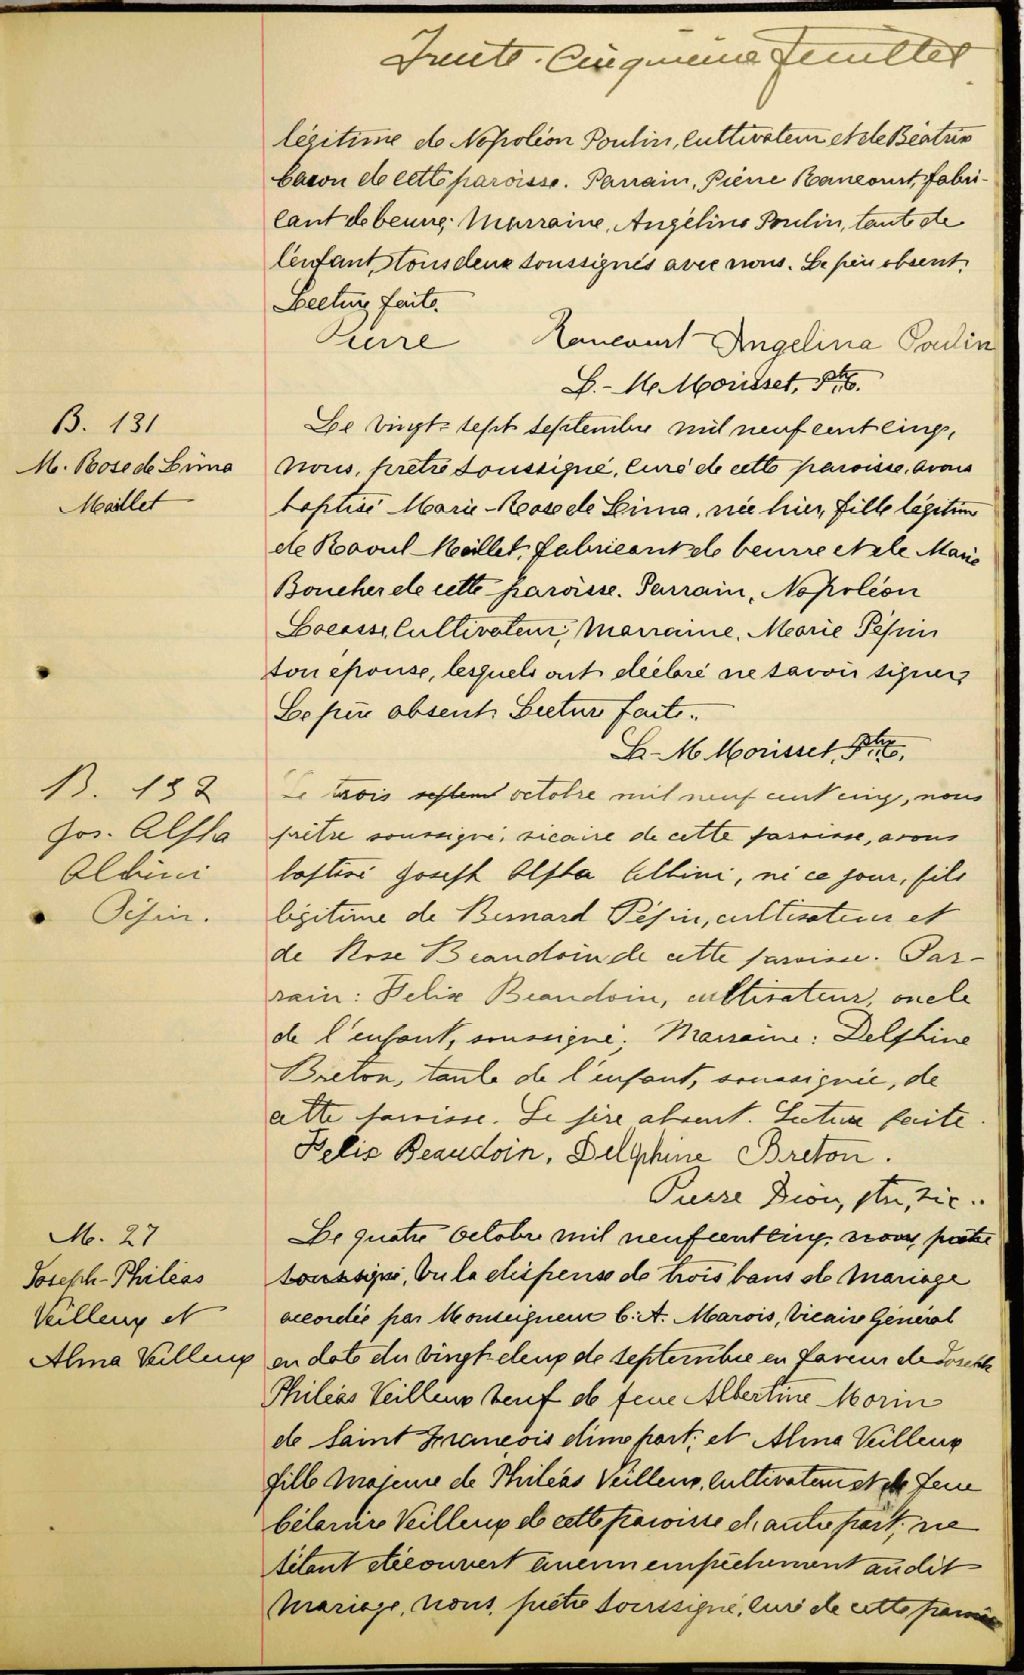 Trente-Cinquième feuillet
légitime de Napoléon Poulin, cultivateur et de Béatrix
Caron de cette paroisse. Parrain, Pierre Rancourt, fabri-
cant de beurre; Marraine, Angélina Poulin, tante de
l'enfant, tous deux soussignés avec nous. Le père absent.
Lecture faite.
Pierre Rancourt Angelina Poulin
L.-M. Morisset, Ptre C.
B. 131
M. Rose de Lima
Maillet
Le vingt-sept septembre mil neuf cent cinq,
nous, prêtre soussigné, curé de cette paroisse, avons
baptisé Marie-Rose de Lima, née hier, fille légitime
de Raoul Maillet, fabricant de beurre et de Marie
Boucher de cette paroisse. Parrain, Napoléon
Lacasse, Cultivateur; Marraine, Marie Pépin
son épouse, lesquels ont déclaré ne savoir signer.
Le père absent. Lecture faite.
L.-M. Morisset, Ptre C.
B. 132
Jos. Alpha
Albini
Pépin.
Le trois septem octobre mil neuf cent cinq, nous
prêtre soussigné, vicaire de cette paroisse, avons
baptisé Joseph Alpha Albini, né ce jour, fils
légitime de Bernard Pépin, cultivateur et
de Rose Beaudoin de cette paroisse. Par-
rain: Felix Beaudoin, cultivateur, oncle
de l'enfant, soussigné; Marraine: Delphine
Breton, tante de l'enfant, soussignée, de
cette paroisse. Le père absent. Lecture faite.
Felix Beaudoin, Delphine Breton.
Pierre Dion, ptre, vic..
M. 27
Joseph-Philéas
Veilleux et
Alma Veilleux
Le quatre Octobre mil neuf cent cinq, nous, prêtre
soussigné, Vu la dispense de trois bans de mariage
accordée par Monseigneur C.-A. Marois, Vicaire Général
en date du vingt-deux de septembre en faveur de Joseph
Philéas Veilleux veuf de feue Albertine Morin
de Saint François d'une part; et Alma Veilleux
fille majeure de Philéas Veilleux, cultivateur et de feue
Célanire Veilleux de cette paroisse d'autre part; ne
s'étant découvert aucun empêchement au dit
mariage, nous, prêtre soussigné, curé de cette paroisse